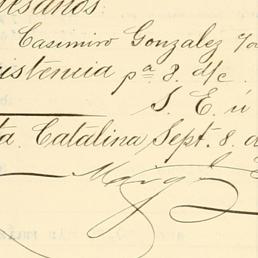 esanos.
Casimiro Gonzalez
istencia pª 8. d/c.
S. E. ú
ta. Catalina Sept. 8. d